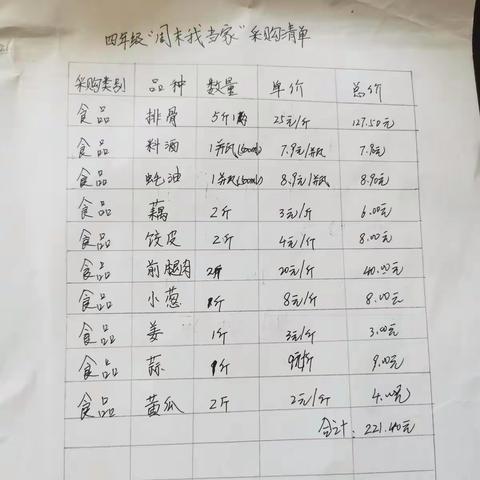 四年级"周末我当家"采购清单
采购类别 品种 数量 单价 总价
食品 排骨 5斤1两 25元/斤 127.50元
食品 料酒 1瓶(500ml) 7.9元/瓶 7.9元
食品 蚝油 1瓶(500ml) 8.9元/瓶 8.90元
食品 藕 2斤 3元/斤 6.00元
食品 饺皮 2斤 4元/斤 8.00元
食品 前腿肉 2斤 20元/斤 40.00元
食品 小葱 1斤 8元/斤 8.00元
食品 姜 1斤 3元/斤 3.00元
食品 蒜 1斤 9元/斤 9.00元
食品 黄瓜 2斤 2元/斤 4.00元
合计:221.40元